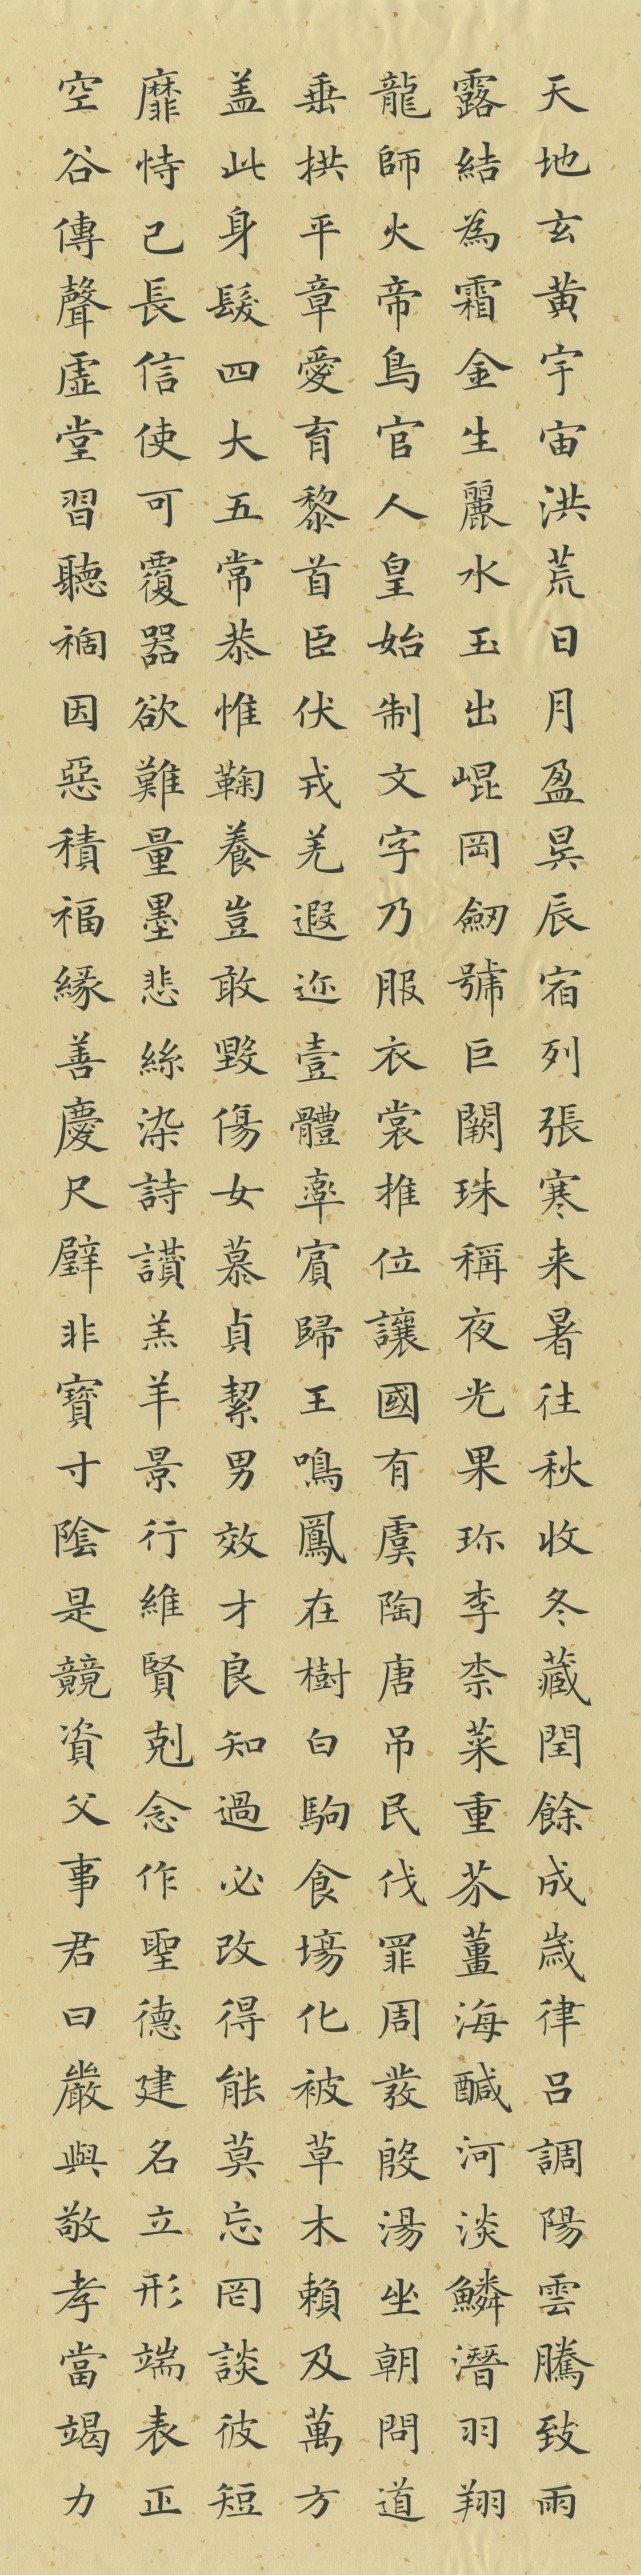 天地玄黃宇宙洪荒日月盈昃辰宿列張寒来暑往秋收冬藏閏餘成歳律呂調陽雲騰致雨
露結為霜金生麗水玉出崐岡劒號巨闕珠稱夜光果珎李柰菜重芥薑海醎河淡鱗潛羽翔
龍師火帝鳥官人皇始制文字乃服衣裳推位讓國有虞陶唐吊民伐罪周發殷湯坐朝問道
垂拱平章愛育黎首臣伏戎羌遐迩壹體率賓歸王鳴鳳在樹白駒食場化被草木賴及萬方
盖此身髮四大五常恭惟鞠養豈敢毀傷女慕貞絜男效才良知過必改得能莫忘罔談彼短
靡恃己長信使可覆器欲難量墨悲絲染詩讚羔羊景行維賢剋念作聖德建名立形端表正
空谷傳聲虛堂習聽禍因惡積福緣善慶尺璧非寶寸陰是競資父事君曰嚴與敬孝當竭力